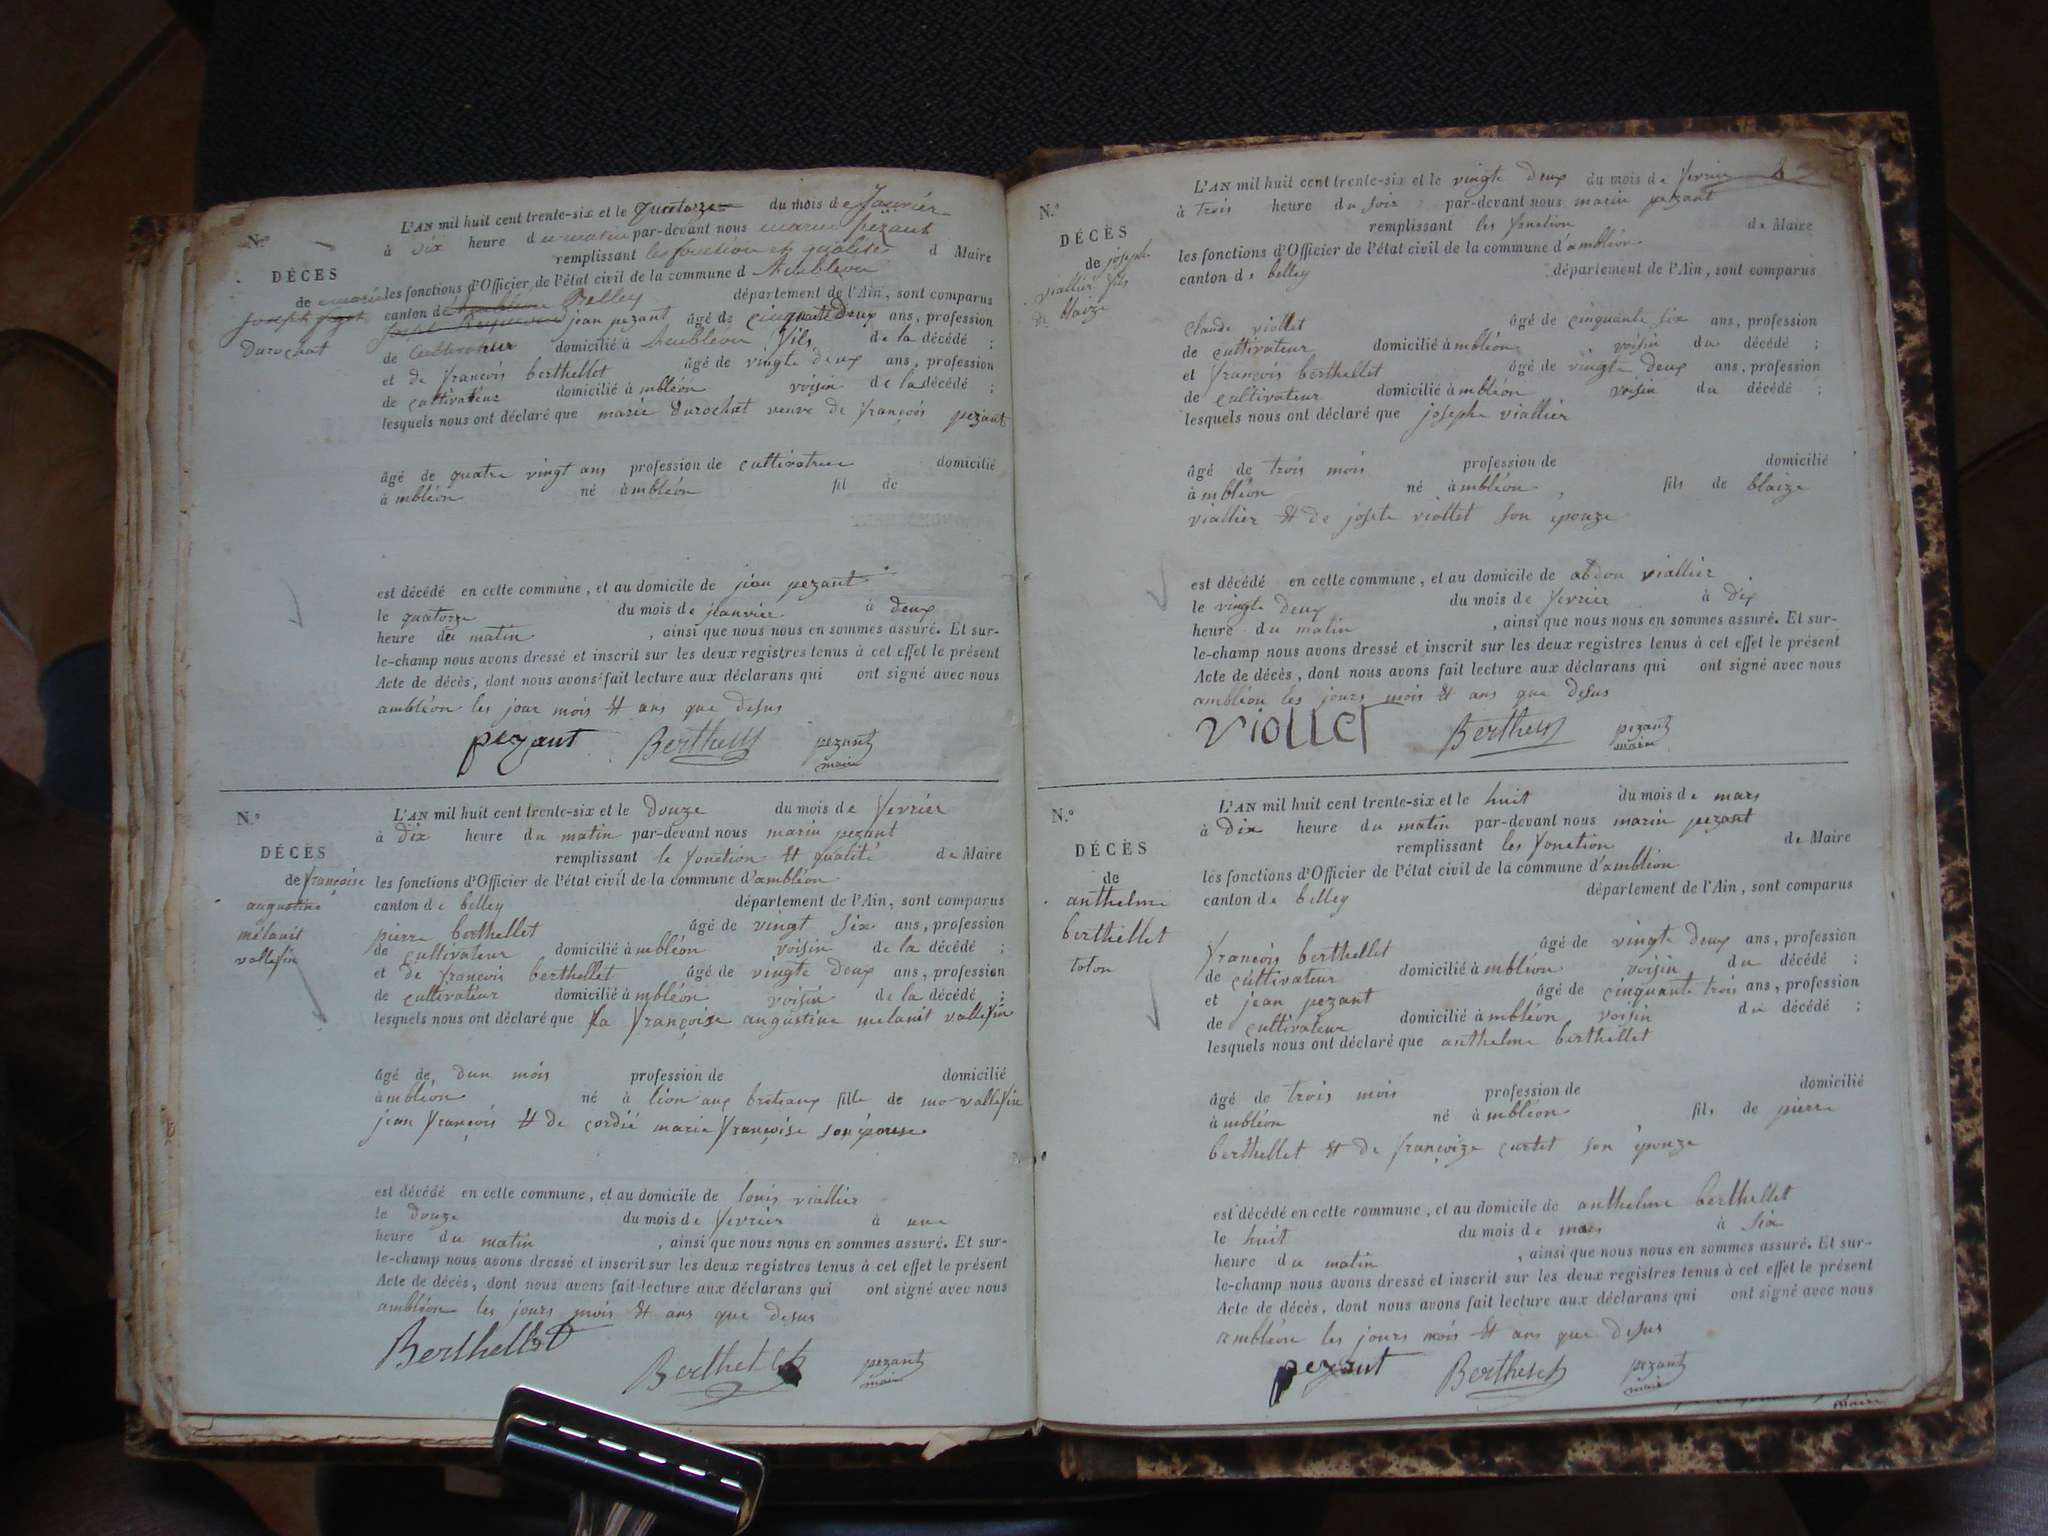 N.º
DÉCES
de marie
joseph pezot
Durochat
L'AN mil huit cent trente-six et le quatorze du mois de Janvier
à dix heure du matin par-devant nous marin pezant
remplissant les fonction et qualité d Maire
les fonctions d'Officier de l'état civil de la commune d Ambléon
canton de Belley département de l'Ain, sont comparus
jean pezant âgé de cinquante deux ans, profession
de Cultivateur domicilié à Ambléon fils de la décédé ;
et de françois berthellet âgé de vingte deux ans, profession
de cultivateur domicilié à mbléon voisin de la décédé ;
lesquels nous ont déclaré que marie durochat veuve de françois pezant
âgé de quatre vingt ans profession de cultivatrice domicilié
à mbléon né à mbléon fil de
est décédé en cette commune, et au domicile de jean pezant
le quatorze du mois de jeanvier à deux
heure du matin , ainsi que nous nous en sommes assuré. Et sur-
le-champ nous avons dressé et inscrit sur les deux registres tenus à cet effet le présent
Acte de décès, dont nous avons fait lecture aux déclarans qui ont signé avec nous
ambléon les jour mois et ans que desus
pezant Berthellet pezant
maire
N.º
DÉCÈS
de françoise
augustine
mélanit
vallesin
L'AN mil huit cent trente-six et le douze du mois de fevrier
à dix heure du matin par-devant nous marin pezant
remplissant le fonction et qualité de Maire
les fonctions d'Officier de l'état civil de la commune d'ambléon
canton de belley département de l'Ain, sont comparus
pierre berthellet âgé de vingt six ans, profession
de cultivateur domicilié à mbléon voisin de la décédé ;
et de françois berthellet âgé de vingte deux ans, profession
de cultivateur domicilié à mbléon voisin de la décédé ;
lesquels nous ont déclaré que la françoise augustine melanit vallesin
âgé de dun mois profession de domicilié
à mbléon né à lion aux brotiaux fille de mr vallesin
jean françois et de cordié marie françoise son épouse
est décédé en cette commune, et au domicile de louis viallier
le douze du mois de fevrier à une
heure du matin , ainsi que nous nous en sommes assuré. Et sur-
le-champ nous avons dressé et inscrit sur les deux registres tenus à cet effet le présent
Acte de décès, dont nous avons fait lecture aux déclarans qui ont signé avec nous
ambléon les jours mois et ans que desus
Berthellet Berthellet pezant
maire
N.º
DÉCÈS
de joseph
viallier fils
de blaize
L'AN mil huit cent trente-six et le vingte deux du mois de fevrier
à trois heure du soir par-devant nous marin pezant
remplissant les fonction de Maire
les fonctions d'Officier de l'état civil de la commune d'ambléon
canton de belley département de l'Ain, sont comparus
Claude viollet âgé de cinquante six ans, profession
de cultivateur domicilié à mbléon voisin du décédé ;
et françois berthellet âgé de vingte deux ans, profession
de cultivateur domicilié à mbléon voisin du décédé ;
lesquels nous ont déclaré que josephe viallier
âgé de trois mois profession de domicilié
à mbléon né à mbléon , fils de blaize
viallier et de josete viollet son épouze
est décédé en cette commune, et au domicile de abdon viallier
le vingte deux du mois de fevrier à dix
heure du matin , ainsi que nous nous en sommes assuré. Et sur-
le-champ nous avons dressé et inscrit sur les deux registres tenus à cet effet le présent
Acte de décès, dont nous avons fait lecture aux déclarans qui ont signé avec nous
ambléon les jours mois et ans que desus
viollet Berthellet pezant
maire
N.º
DÉCÈS
de
anthelme
berthellet
toton
L'AN mil huit cent trente-six et le huit du mois de mars
à dix heure du matin par-devant nous marin pezant
remplissant les fonction de Maire
les fonctions d'Officier de l'état civil de la commune d'ambléon
canton de belley département de l'Ain, sont comparus
françois berthellet âgé de vingte deux ans, profession
de cultivateur domicilié à mbléon voisin du décédé ;
et jean pezant âgé de cinquante trois ans, profession
de cultivateur domicilié à mbléon voisin du décédé ;
lesquels nous ont déclaré que anthelme berthellet
âgé de trois mois profession de domicilié
à mbléon né à mbléon fils de pierre
berthellet et de françoize curtet son épouze
est décédé en cette commune, et au domicile de anthelme berthellet
le huit du mois de mars à six
heure du matin , ainsi que nous nous en sommes assuré. Et sur-
le-champ nous avons dressé et inscrit sur les deux registres tenus à cet effet le présent
Acte de décès, dont nous avons fait lecture aux déclarans qui ont signé avec nous
ambléon les jours mois et ans que desus
pezant Berthellet pezant
maire
maire